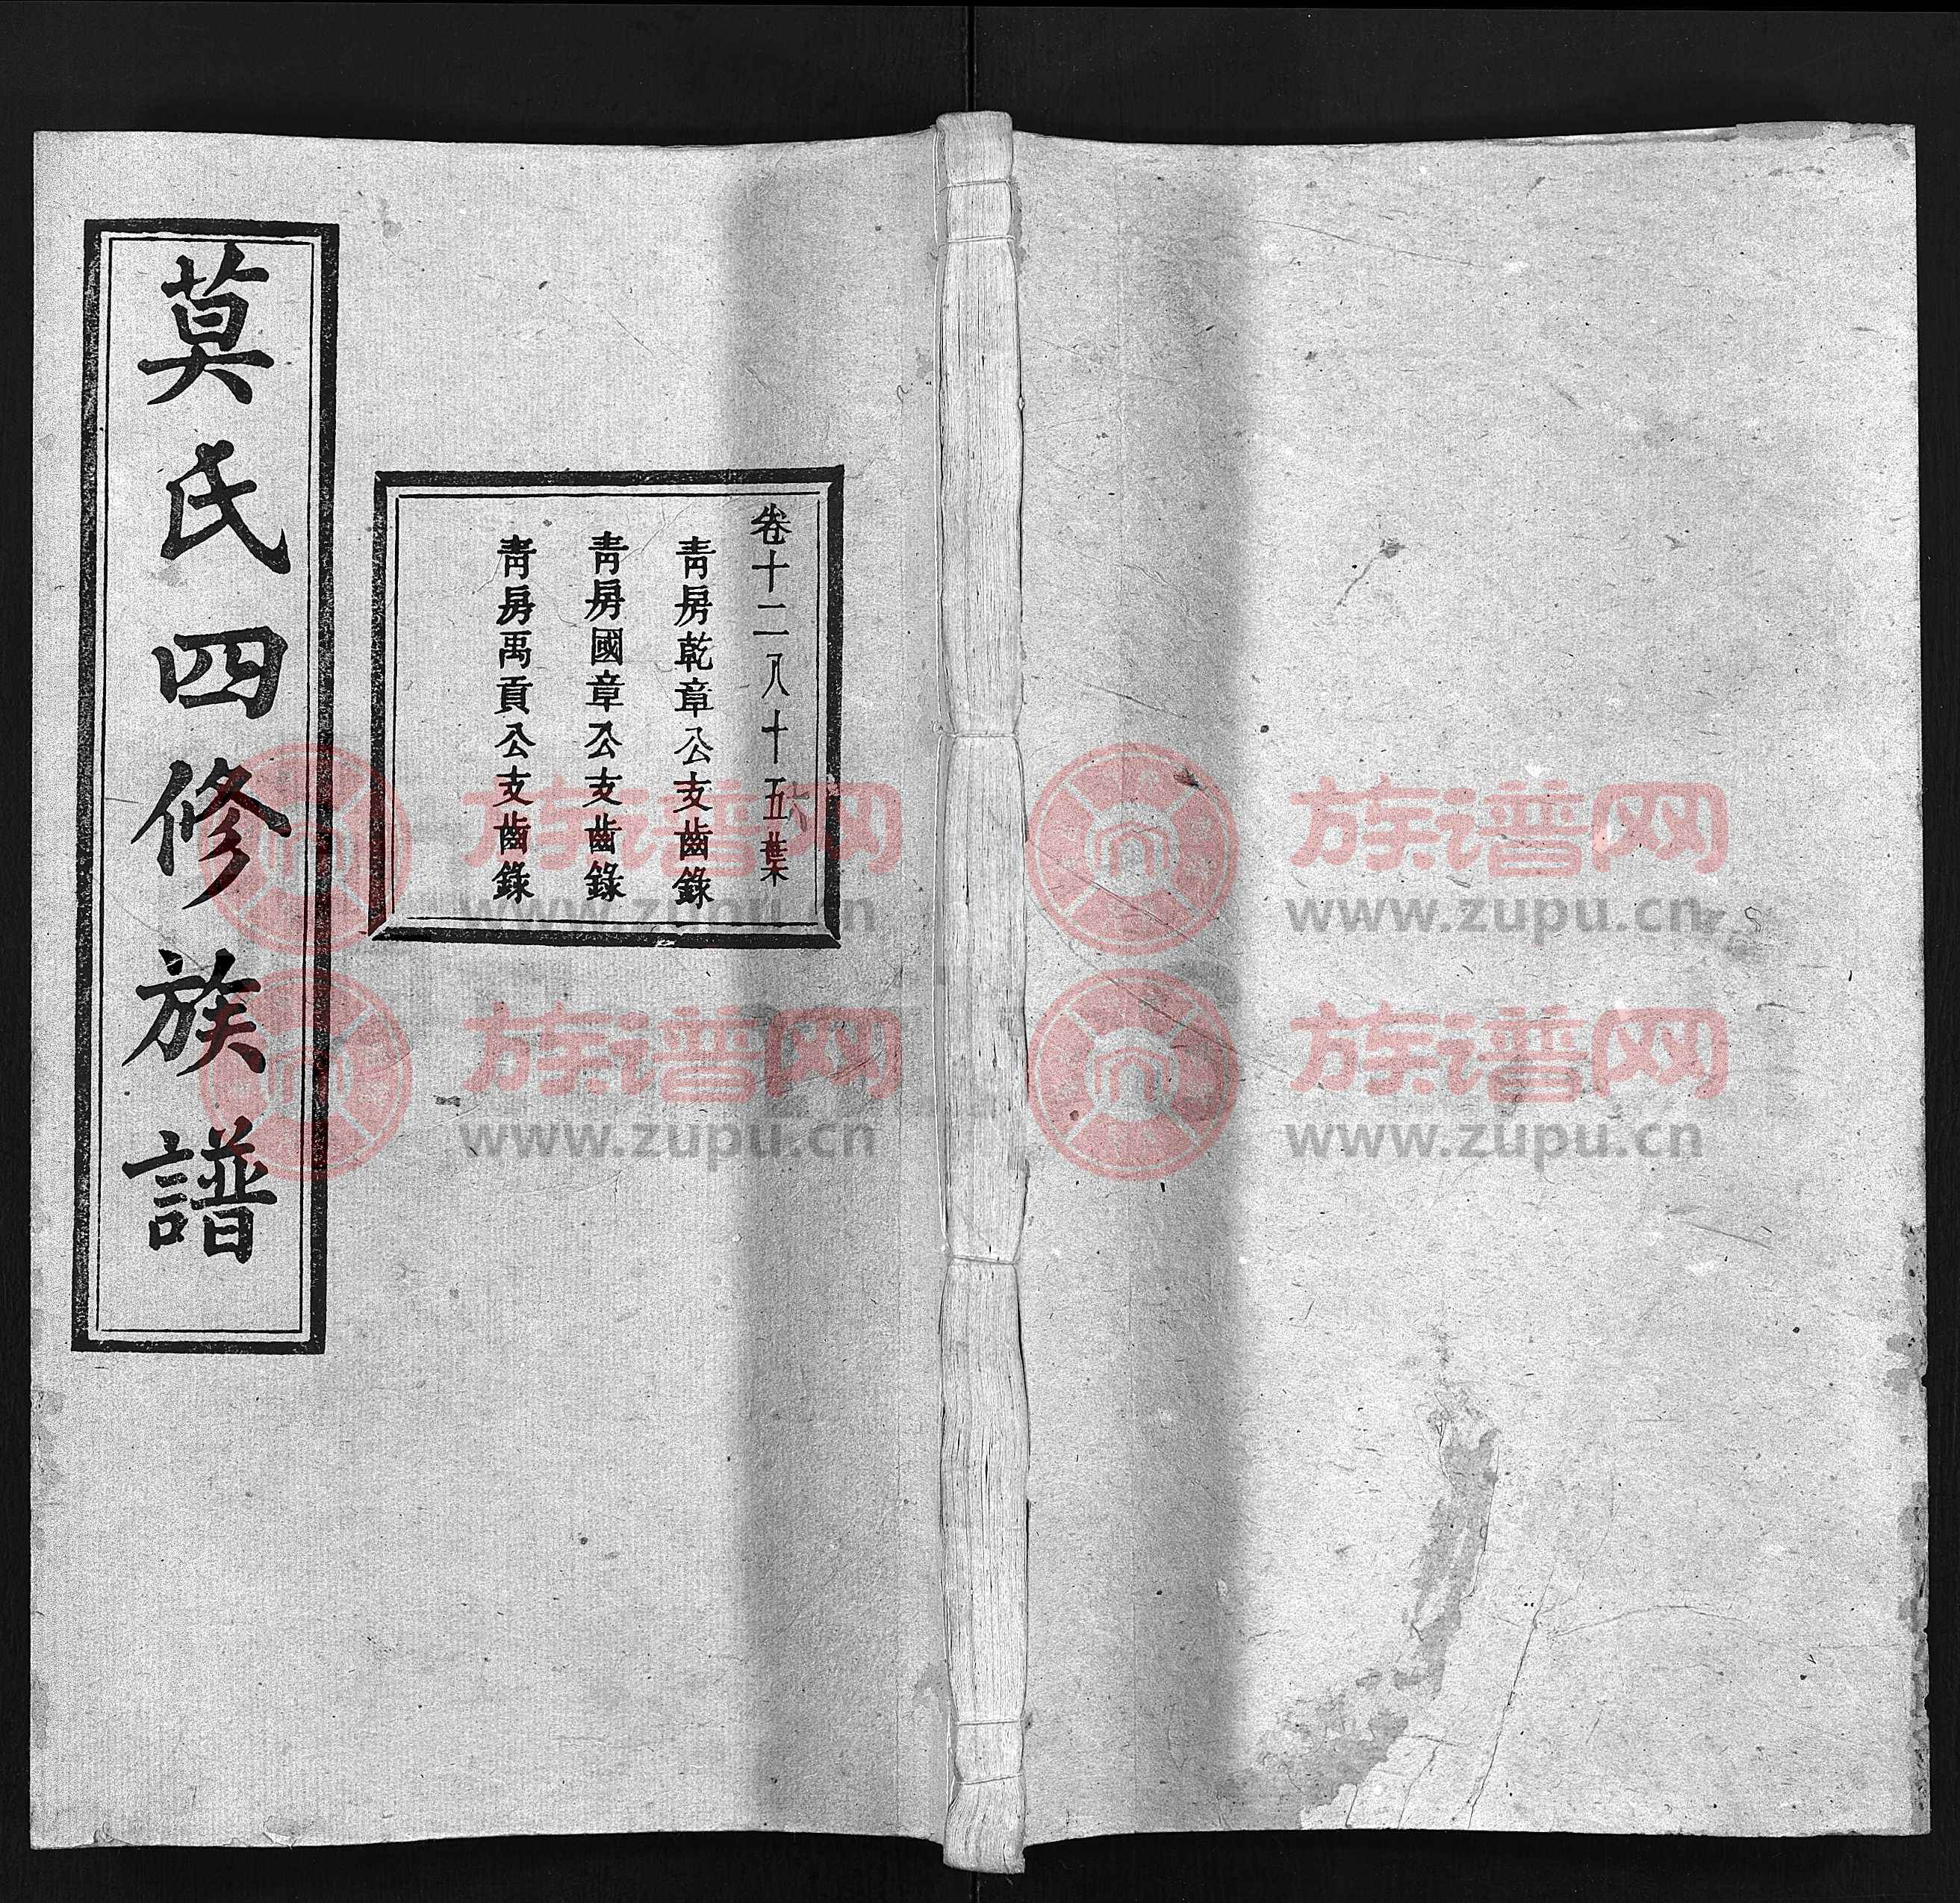 莫氏四修族譜
卷十二八十五葉
六
青房乾章公支齒錄
青房國章公支齒錄
青房禹貢公支齒錄
族谱网
www.zupu.cn
族谱网
www.zupu.cn
族谱网
www.zupu.cn
族谱网
www.zupu.cn